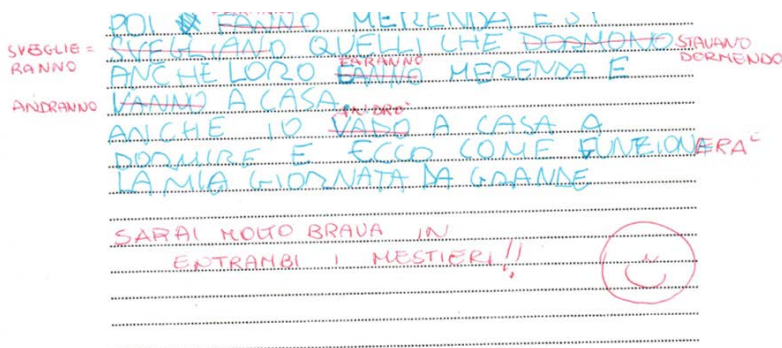 POI FANNO MERENDA E SI
SVEGLIE= SVEGLIANO QUELLI CHE DORMONO STAVANO
RANNO ANCHE LORO FARANNO FANNO MERENDA E DORMENDO
ANDRANNO VANNO A CASA.
ANCHE IO ANDRÒ VADO A CASA A
DORMIRE E ECCO COME FUNZIONA ERÀ
LA MIA GIORNATA DA GRANDE
SARAI MOLTO BRAVA IN
ENTRAMBI I MESTIERI!!